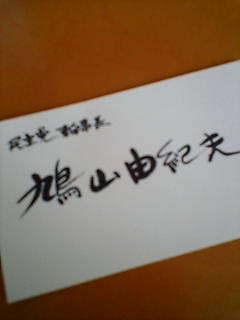 民主党 幹事長
鳩山由紀夫